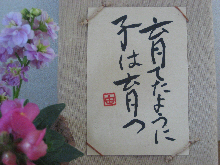 育てたように
子は育つ